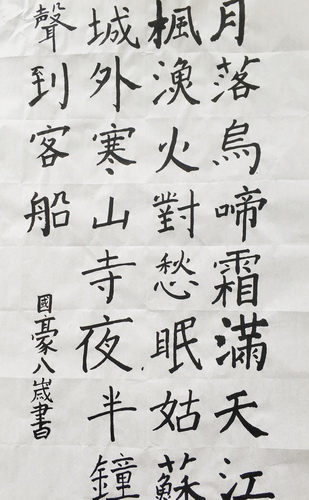 月落烏啼霜滿天江
楓漁火對愁眠姑蘇
城外寒山寺夜半鐘
聲到客船
國豪八歲書